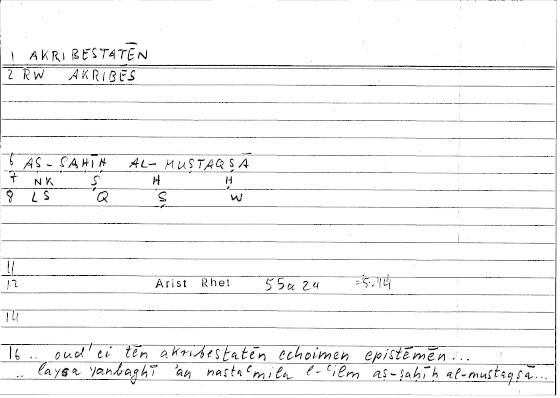 1 AKRIBESTATĒN
2 RW AKRIBĒS
6 AṢ-ṢAḤĪḤ AL-MUSTAQṢĀ
7 NK Ṣ Ḥ Ḥ
8 LS Q Ṣ W
11
12 Arist Rhet 55a 24 =5.14
14
16 .. oud' ei tēn akribestatēn echoimen epistēmēn...
.. laysa yanbaghī 'an nastaʿmila l-ʿilm aṣ-ṣaḥīḥ al-mustaqṣā...